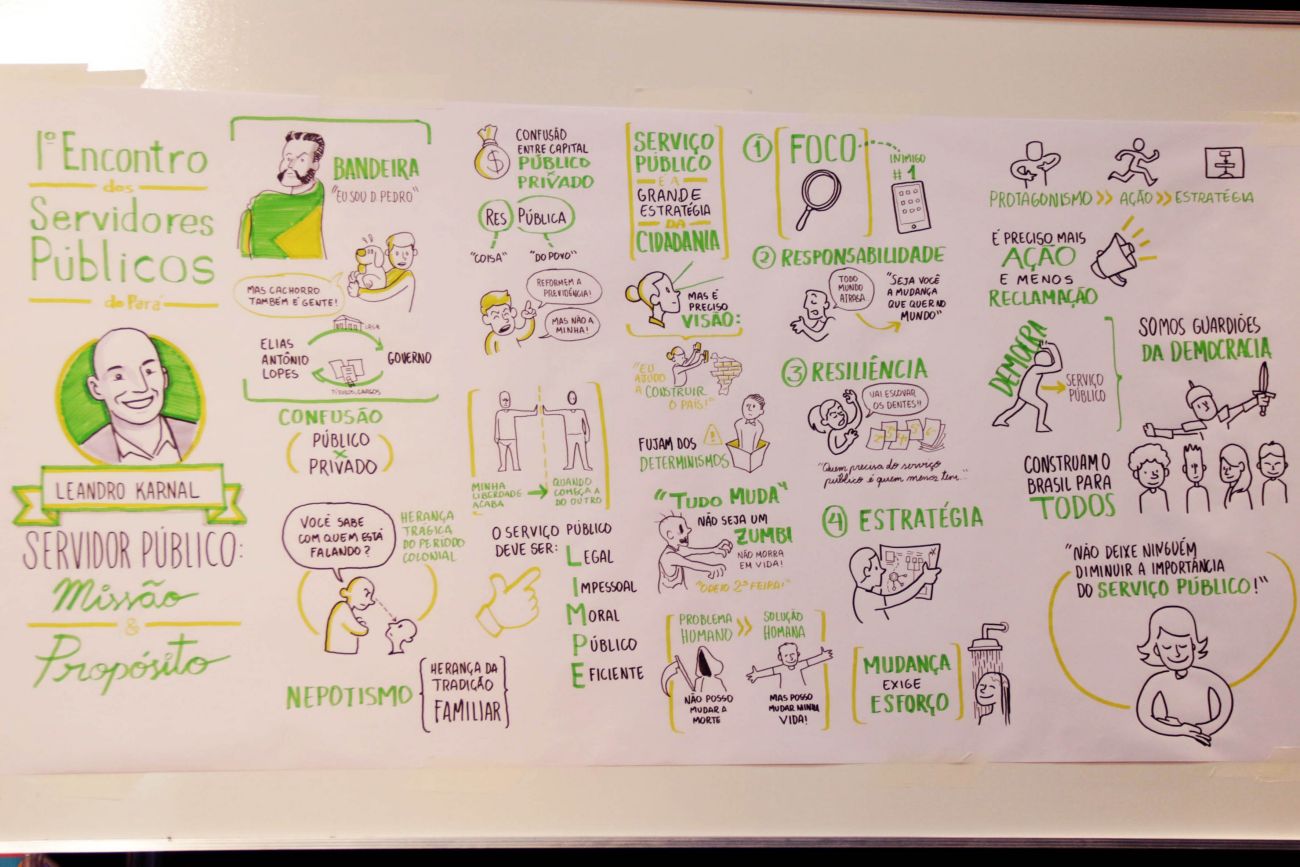 1º ENCONTRO
dos
SERVIDORES
PÚBLICOS
do Pará
LEANDRO KARNAL
SERVIDOR PÚBLICO:
Missão
&
Propósito
BANDEIRA
"EU SOU D PEDRO"
MAS CACHORRO
TAMBÉM É GENTE!
ELIAS
ANTÔNIO
LOPES
CASA
GOVERNO
TÍTULOS, CARGOS
CONFUSÃO
PÚBLICO
×
PRIVADO
VOCÊ SABE
COM QUEM ESTÁ
FALANDO?
HERANÇA
TRÁGICA
DO PERÍODO
COLONIAL
NEPOTISMO
HERANÇA DA
TRADIÇÃO
FAMILIAR
$
CONFUSÃO
ENTRE CAPITAL
PÚBLICO
×
PRIVADO
RES PÚBLICA
"COISA" "DO POVO"
REFORMEM A
PREVIDÊNCIA!
MAS NÃO A
MINHA!
MINHA
LIBERDADE
ACABA
QUANDO
COMEÇA A
DO OUTRO
O SERVIÇO PÚBLICO
DEVE SER:
LEGAL
IMPESSOAL
MORAL
PÚBLICO
EFICIENTE
SERVIÇO
PÚBLICO
É A
GRANDE
ESTRATÉGIA
DA
CIDADANIA
MAS É
PRECISO
VISÃO:
"EU
AJUDO
A CONSTRUIR
O PAÍS!"
FUJAM DOS
DETERMINISMOS
!
"TUDO MUDA"
NÃO SEJA UM
ZUMBI
NÃO MORRA
EM VIDA!
"ODEIO 2ª FEIRA!"
PROBLEMA
HUMANO
>>
SOLUÇÃO
HUMANA
NÃO POSSO
MUDAR A
MORTE
MAS POSSO
MUDAR MINHA
VIDA!
1 FOCO
INIMIGO
#1
2 RESPONSABILIDADE
TODO
MUNDO
ATRASA
"SEJA VOCÊ
A MUDANÇA
QUE QUER NO
MUNDO"
3 RESILIÊNCIA
VAI ESCOVAR
OS DENTES!!
"Quem precisa do serviço
público é quem menos tem..."
4 ESTRATÉGIA
MUDANÇA
EXIGE
ESFORÇO
PROTAGONISMO >> AÇÃO >> ESTRATÉGIA
É PRECISO MAIS
AÇÃO
E MENOS
RECLAMAÇÃO
DEMOCRA
SERVIÇO
PÚBLICO
SOMOS GUARDIÕES
DA DEMOCRACIA
CONSTRUAM O
BRASIL PARA
TODOS
"NÃO DEIXE NINGUÉM
DIMINUIR A IMPORTÂNCIA
DO SERVIÇO PÚBLICO!"